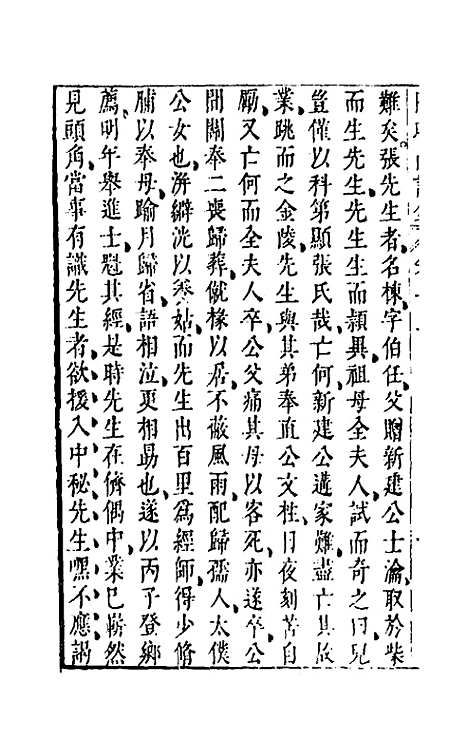 難矣張先生者名棟字伯任父贈新建公士瀹取於柴
而生先生先生生而穎異祖母全夫人試而奇之曰兒
豈僅以科第顯張氏哉亡何新建公遘家難盡亡其故
業跳而之金陵先生與其弟奉直公文柱日夜刻苦自
勵又亡何而全夫人卒公父痛其母以客死亦遂卒公
間關奉二喪歸葬僦椽以居不蔽風雨配歸孺人太僕
公女也洴澼洸以養姑而先生出百里爲經師得少脩
脯以奉母踰月歸省語相泣更相勗也遂以丙子登鄉
薦明年舉進士魁其經是時先生在儕偶中業已嶄然
見頭角當事有識先生者欲援入中秘先生嘿不應謁